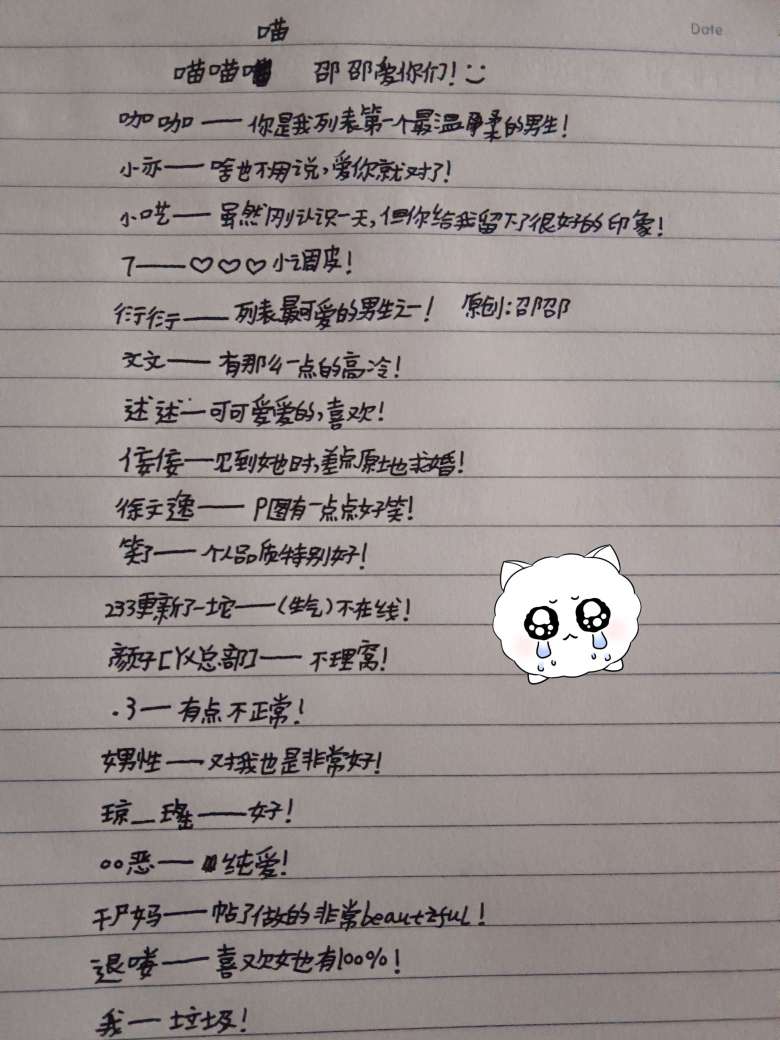 Date
喵
喵喵 邵邵爱你们!
咖咖——你是我列表第一个最温柔的男生!
小亦——啥也不用说,爱你就对了!
小呓——虽然刚认识一天,但你给我留下了很好的印象!
7——♡♡♡小调皮!
衍衍——列表最可爱的男生之一! 原创:邵邵
文文——有那么一点的高冷!
述述—可可爱爱的,喜欢!
倿倿—见到她时,差点原地求婚!
徐文逸——P图有一点点好笑!
笑了——个人品质特别好!
233重新了一坨——(生气)不在线!
颜子[YX总部]——不理窝!
.3—有点不正常!
男性——对我也是非常好!
琼__瑶——好!
○○恶——纯爱!
干尸妈——帖子做的非常beautzful!
退喽——喜欢她也有100%!
我—垃圾!